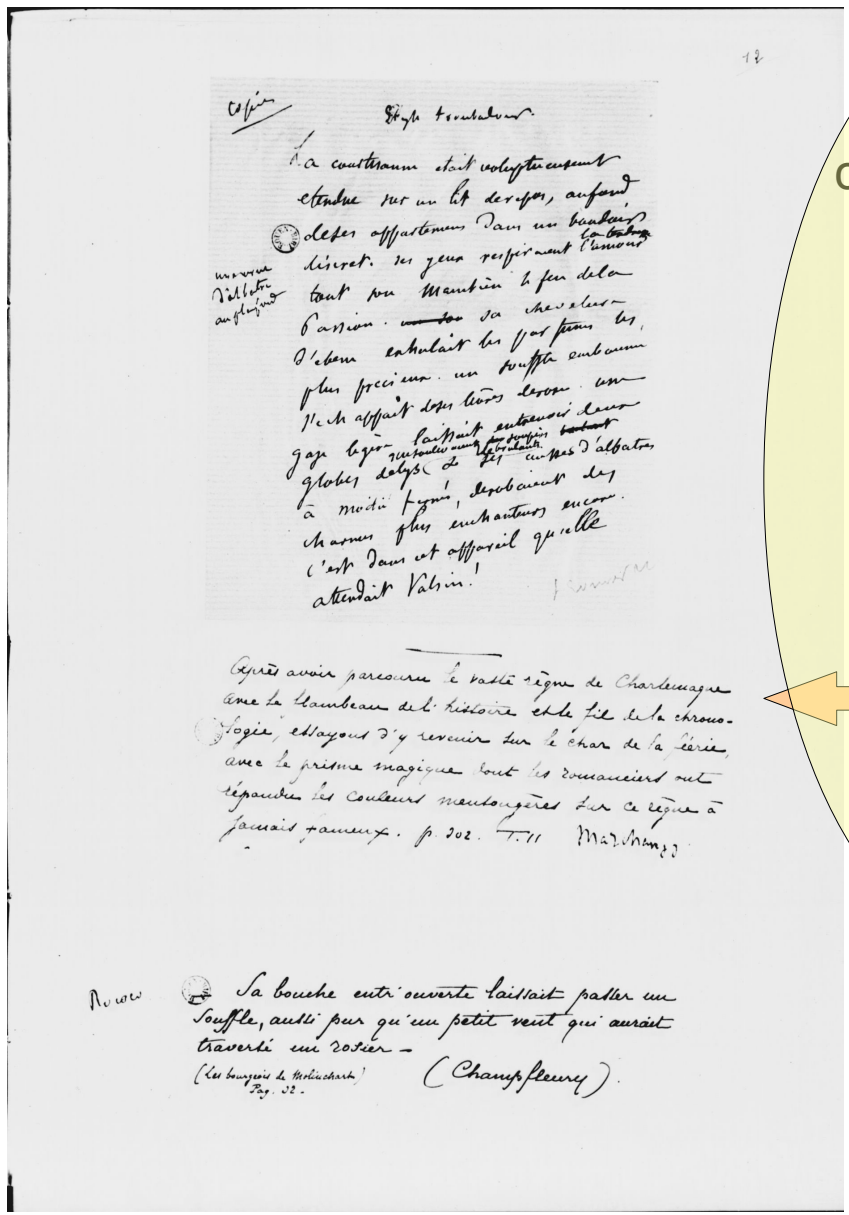 12
copier
Style troubadour.
La courtisanne était voluptueusement
étendue sur un lit de repos, au fond
de ses appartemens dans un boudoir
discret. ses yeux respiraient l'amour
tout son maintien le feu de la
passion. sa chevelure
d'ébene exhalait les parfums les
plus precieux. un souffle embaumé
s'échappait de ses lèvres de rose. une
gaze légère laissait entrevoir deux
globes de lys
ses cuisses d'albatres
à moitié fermés, derobaient des
charmes plus enchanteurs encore.
c'est dans cet appareil qu'elle
attendait Valsin!
Après avoir parcouru le vaste règne de Charlemagne
avec le flambeau de l'histoire et le fil de la chrono-
logie, essayons d'y revenir sur le char de la féérie,
avec le prisme magique dont les romanciers ont
répandu les couleurs mensongères sur ce règne à
jamais fameux. p. 302. T. II Marchangy
Rococo
Sa bouche entr'ouverte laissait passer un
souffle, aussi pur qu'un petit vent qui aurait
traversé un rosier –
(Les bourgeois de Molinchart) (Champfleury).
Pag. 32.